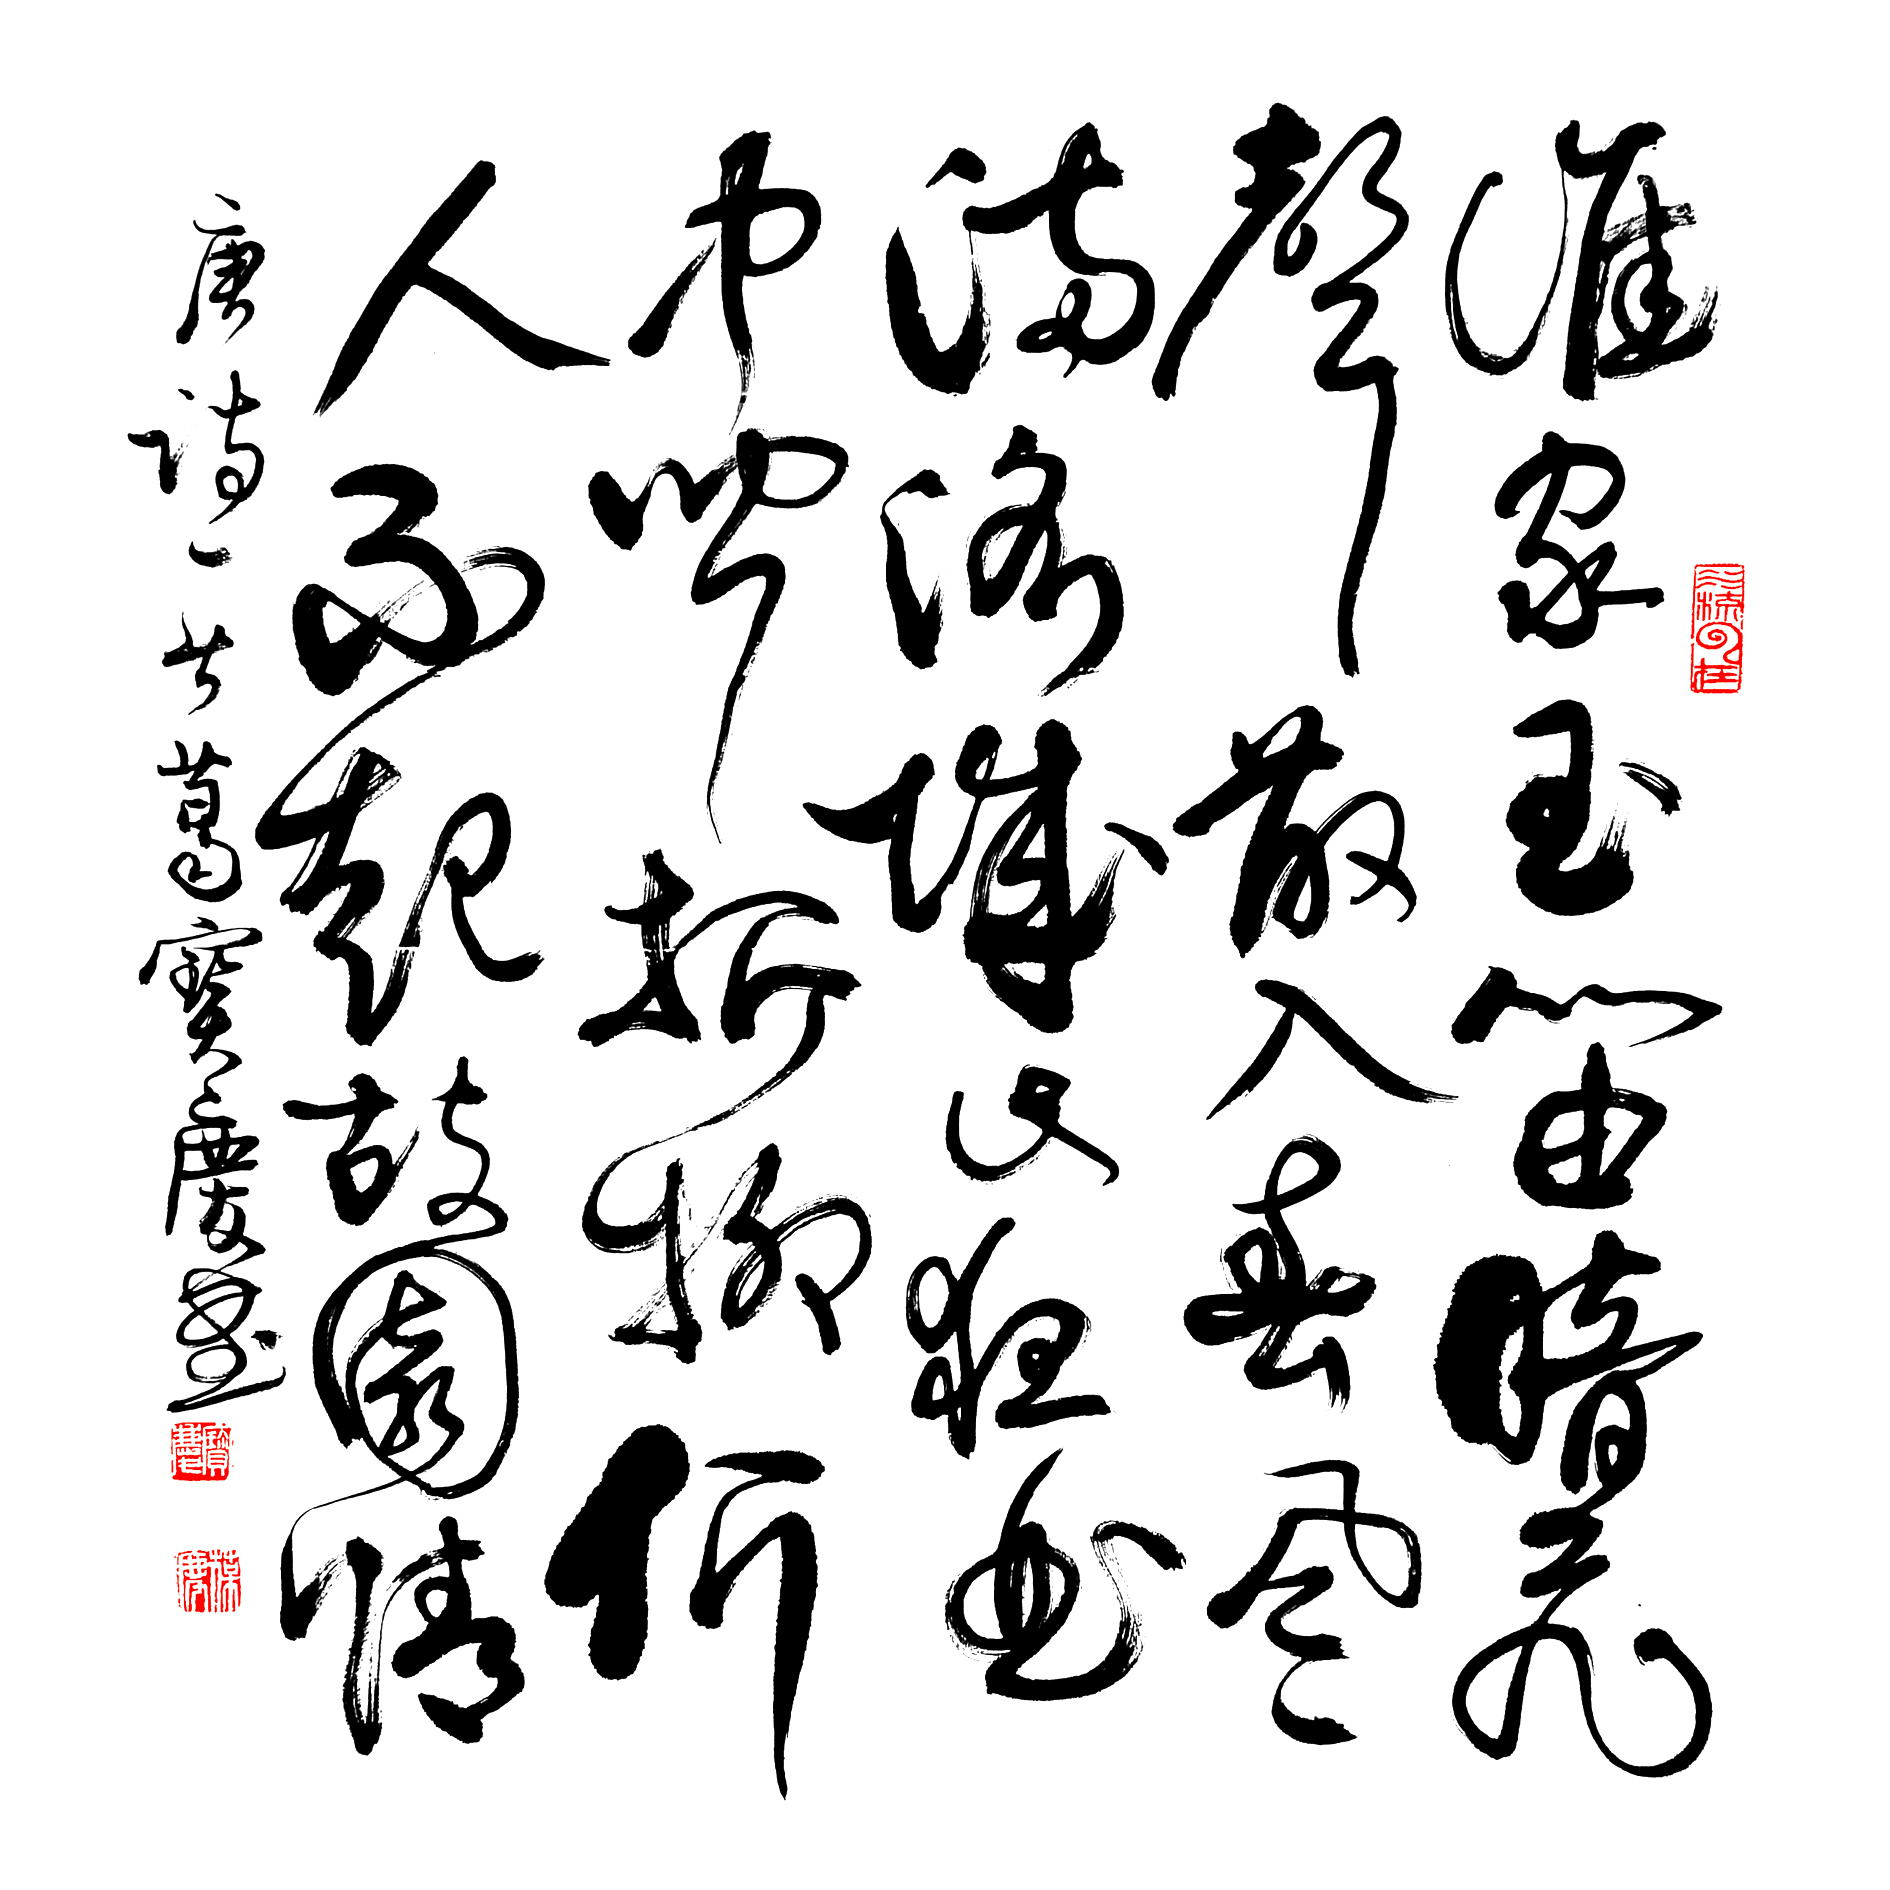 誰家玉笛暗飛
聲散入春風
滿洛城此夜曲
中聞折柳何
人不起故園情
唐詩一首葛寶慶書